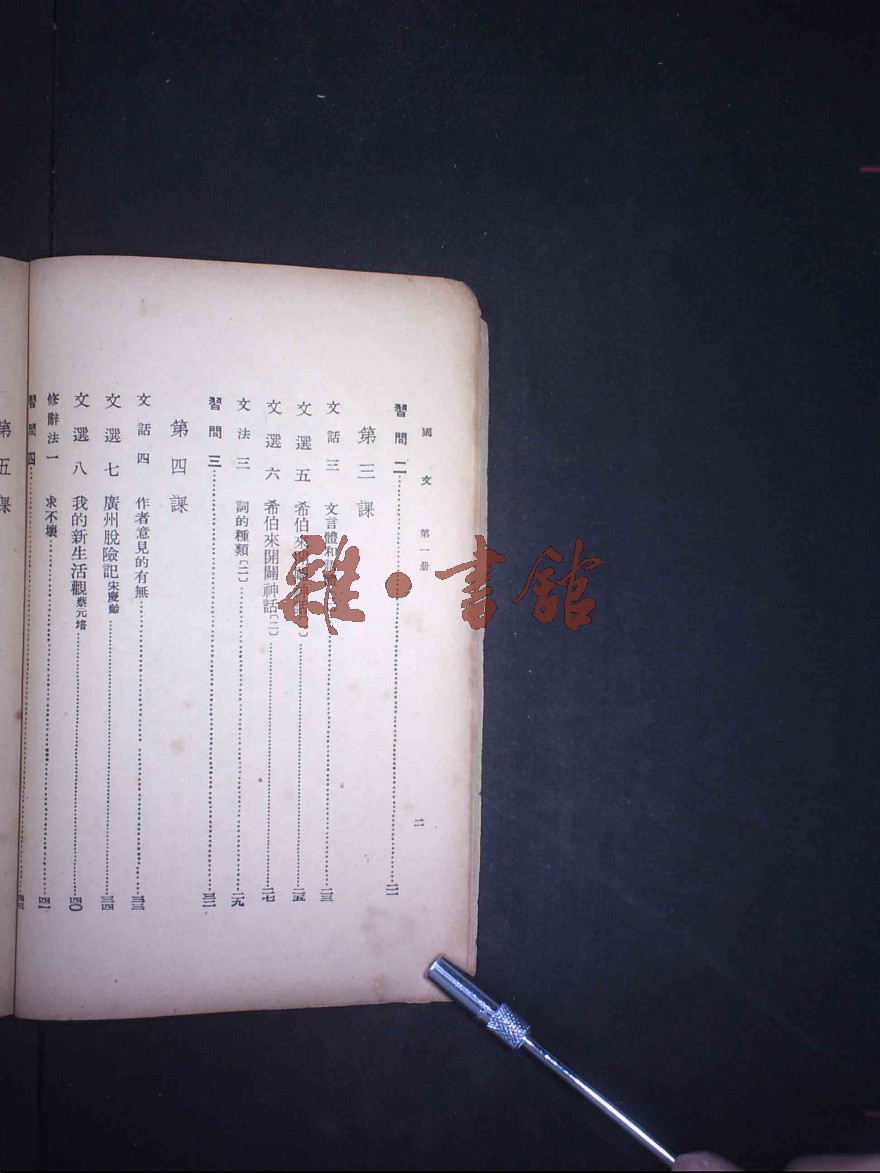 國文 第一册 二
習問二 二一
第三課
文話三 文言體和語 二三
文選五 希伯來開闢神話〔一〕 二五
文選六 希伯來開闢神話〔二〕 二七
文法三 詞的種類〔二〕 二九
習問三 三二
第四課
文話四 作者意見的有無 三三
文選七 廣州脫險記 宋慶齡 三四
文選八 我的新生活觀 蔡元培 四〇
修辭法一 求不壞 四一
習問四
第五課
雜·書館